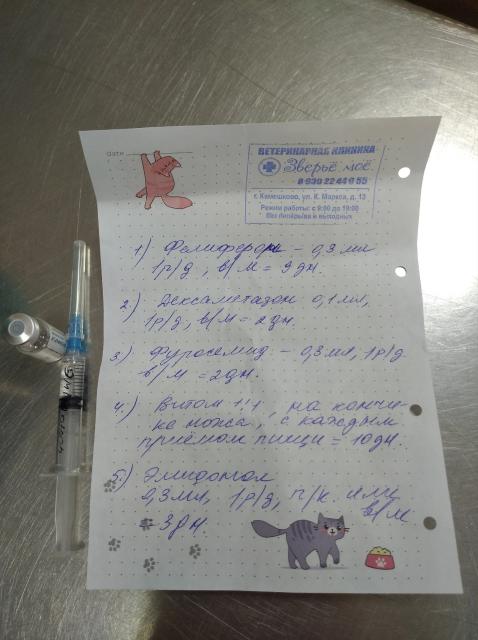 Дата
ВЕТЕРИНАРНАЯ КЛИНИКА
Зверьё моё
8 930 22 44 0 55
г. Камешково, ул. К. Маркса, д. 13
Режим работы: с 9:00 до 19:00
Без перерыва и выходных
1) Фелиферон - 0,3 мл
1р/д, в/м = 9дн.
2) Дексаметазон 0,1 мл,
1р/д, в/м = 2дн.
3) Фуросемид - 0,3 мл, 1р/д
в/м = 2дн.
4) Витам 1:1:1, на кончи-
ке ножа, с каждым
приёмом пищи = 10дн.
5)
0,3 мл, 1р/д, п/к или
в/м
= 3дн